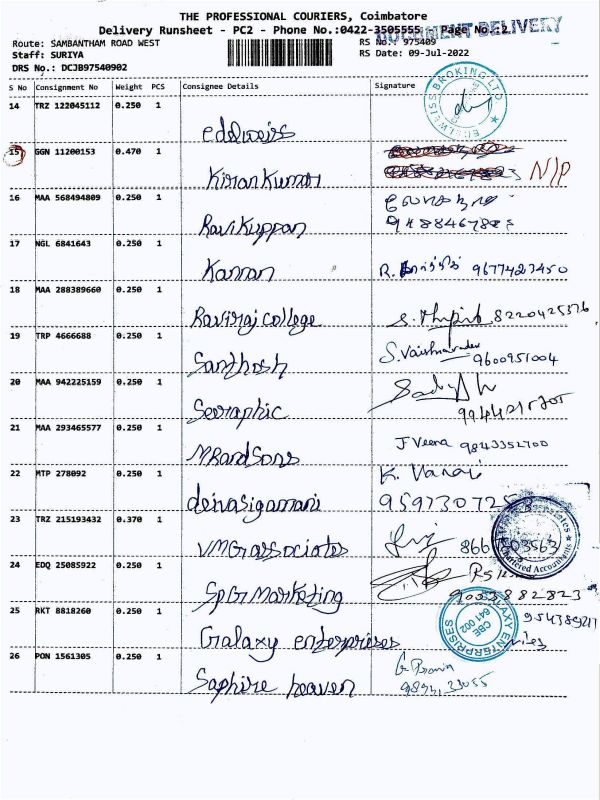 THE PROFESSIONAL COURIERS, Coimbatore
Delivery Runsheet - PC2 - Phone No.:0422-3505555 Page No.:2
DOCUMENT DELIVERY
Route: SAMBANTHAM ROAD WEST RS No.: 975409
Staff: SURIYA RS Date: 09-Jul-2022
DRS No.: DCJB97540902
S No Consignment No Weight PCS Consignee Details Signature
14 TRZ 122045112 0.250 1 edelweiss
EDELWEISS BROKING LTD
15 GGN 11200153 0.470 1 Kirankumar N/P
16 MAA 568494809 0.250 1 Ravikuppan
17 NGL 6841643 0.250 1 Kannan R. 9677423450
18 MAA 288389660 0.250 1 Raviraj college 8220425376
19 TRP 4666688 0.250 1 Santhosh S.Vaishnavadev 9600951004
20 MAA 942225159 0.250 1 Seeraphic
21 MAA 293465577 0.250 1 MRandSons J Veena 9843352700
22 MTP 278092 0.250 1 deivasigamani K. Vanaj
23 TRZ 215193432 0.370 1 VMG associates
Chartered Accountants
24 EDQ 25085922 0.250 1 SpG Marketing
25 RKT 8818260 0.250 1 Galaxy enterprises
GALAXY ENTERPRISES CBE 641 002
26 PON 1561305 0.250 1 Saphire heaven